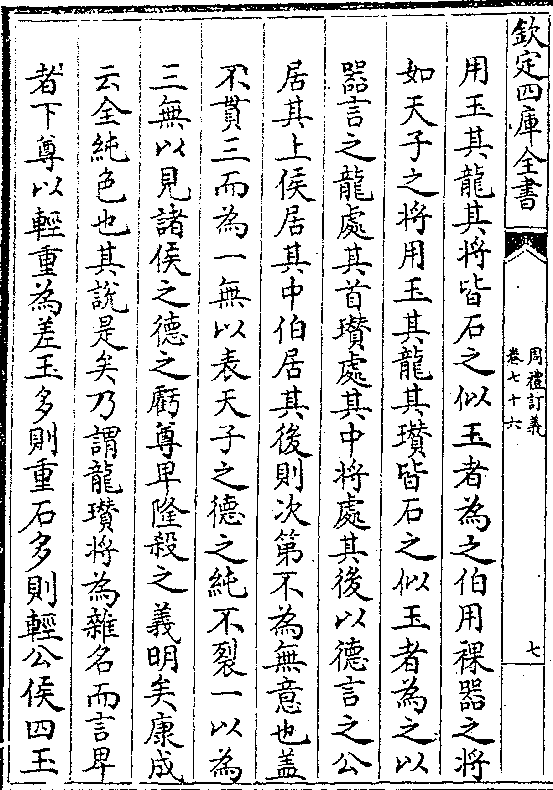 用玉其龍其將皆石之似玉者為之伯用祼器之將
如天子之將用玉其龍其瓚皆石之似玉者為之以
器言之龍處其首瓚處其中將處其後以德言之公
居其上侯居其中伯居其後則次第不為無意也盖
不貫三而為一無以表天子之德之純不裂一以為
三無以見諸侯之德之虧尊卑隆殺之義明矣康成
云全純色也其說是矣乃謂龍瓚將為雜名而言卑
者下尊以輕重為差玉多則重石多則輕公侯四玉
欽定四庫全書
周禮訂義
卷七十六
七